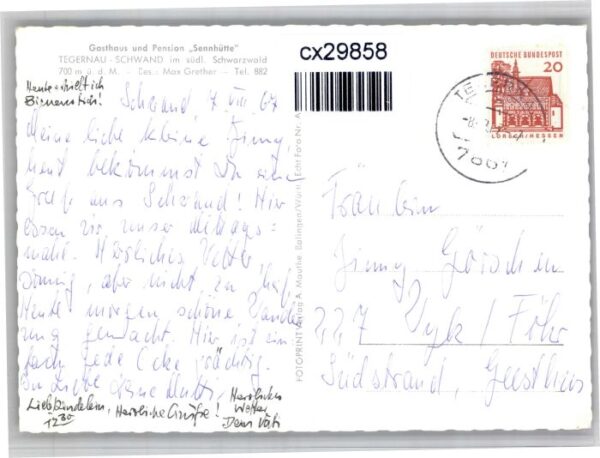 Gasthaus und Pension „Sennhütte"
TEGERNAU - SCHWAND im südl. Schwarzwald
700 m ü. d. M. - Bes.: Max Grether - Tel. 882
cx29858
DEUTSCHE BUNDESPOST
20
LORSCH/HESSEN
Heute erhielt ich
Bienenstich!
Schwand 7 VIII 67
Meine liebe kleine Jinny,
heut bekommst Du eine
Gruß aus Schwand! Hier
essen wir unser Mittags=
mahl. Herrliches Wetter
sonnig, aber nicht zu heiß
Heute morgen schöne Wander
ung gemacht. Hier ist ein
fach jede Ecke prächtig.
In Liebe Deine Mutti,
Lieb Kindelein, Herzliche Grüße!
12 30
Herrliches
Wetter
Dein Vati
FOTOPRINT Verlag A. Mauthe Balingen/Württ. Echt Foto Nr. A
786
Fräulein
Jinny
227 Wyk / Föhr
Südstrand,